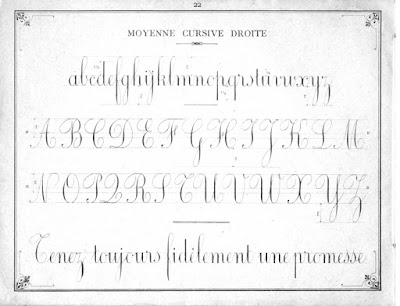 22
MOYENNE CURSIVE DROITE
abcdefghijklmnopqrstuvuxyz
ABCDEFGHIJKLM
NOPQRSTUVWXYZ
Tenez toujours fidèlement une promesse